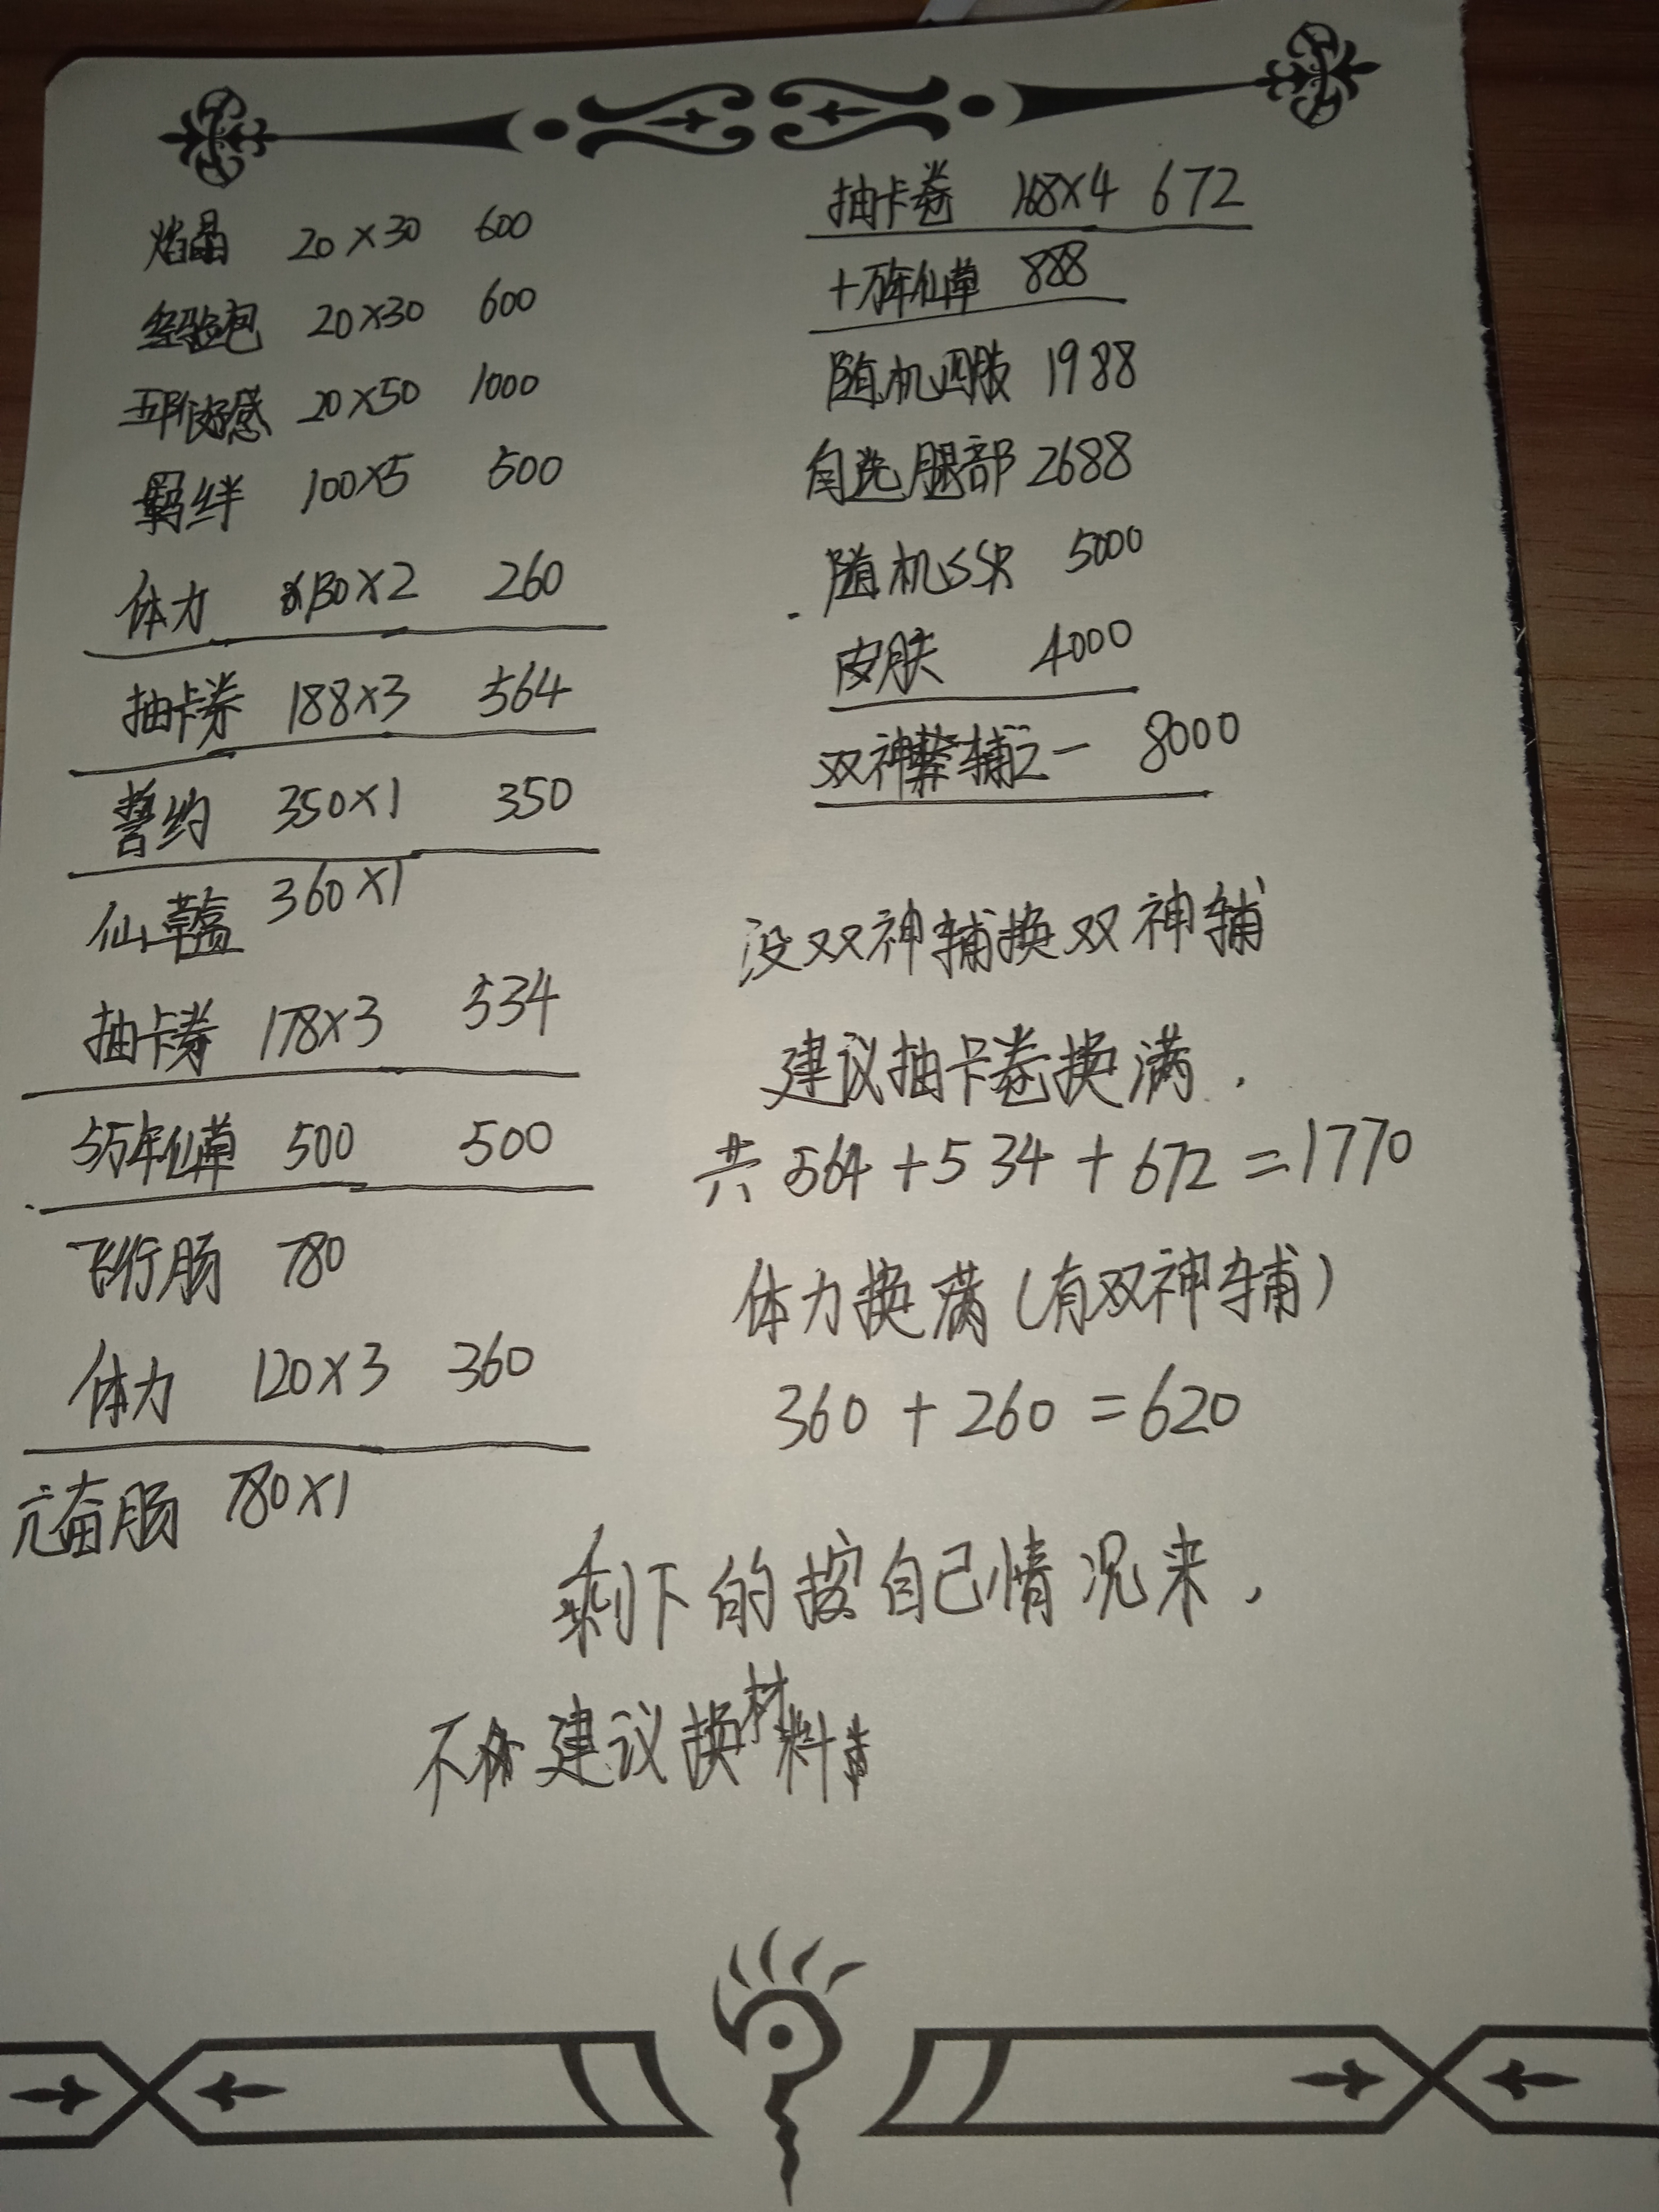 焰晶 20×30 600
经验包 20×30 600
好感 20×50 1000
羁绊 100×5 500
体力 130×2 260
抽卡券 188×3 564
誓约 350×1 350
仙草盒 360×1
抽卡券 178×3 534
5万年仙草 500 500
飞行肠 780
体力 120×3 360
亢奋肠 780×1
抽卡卷 168×4 672
十万年仙草 888
随机四肢 1988
自选腿部 2688
随机SSR 5000
皮肤 4000
双神辅之一 8000
没双神辅换双神辅
建议抽卡卷换满.
共564+534+672=1770
体力换满(有双神辅)
360+260=620
剩下的按自己情况来,
不建议换材料